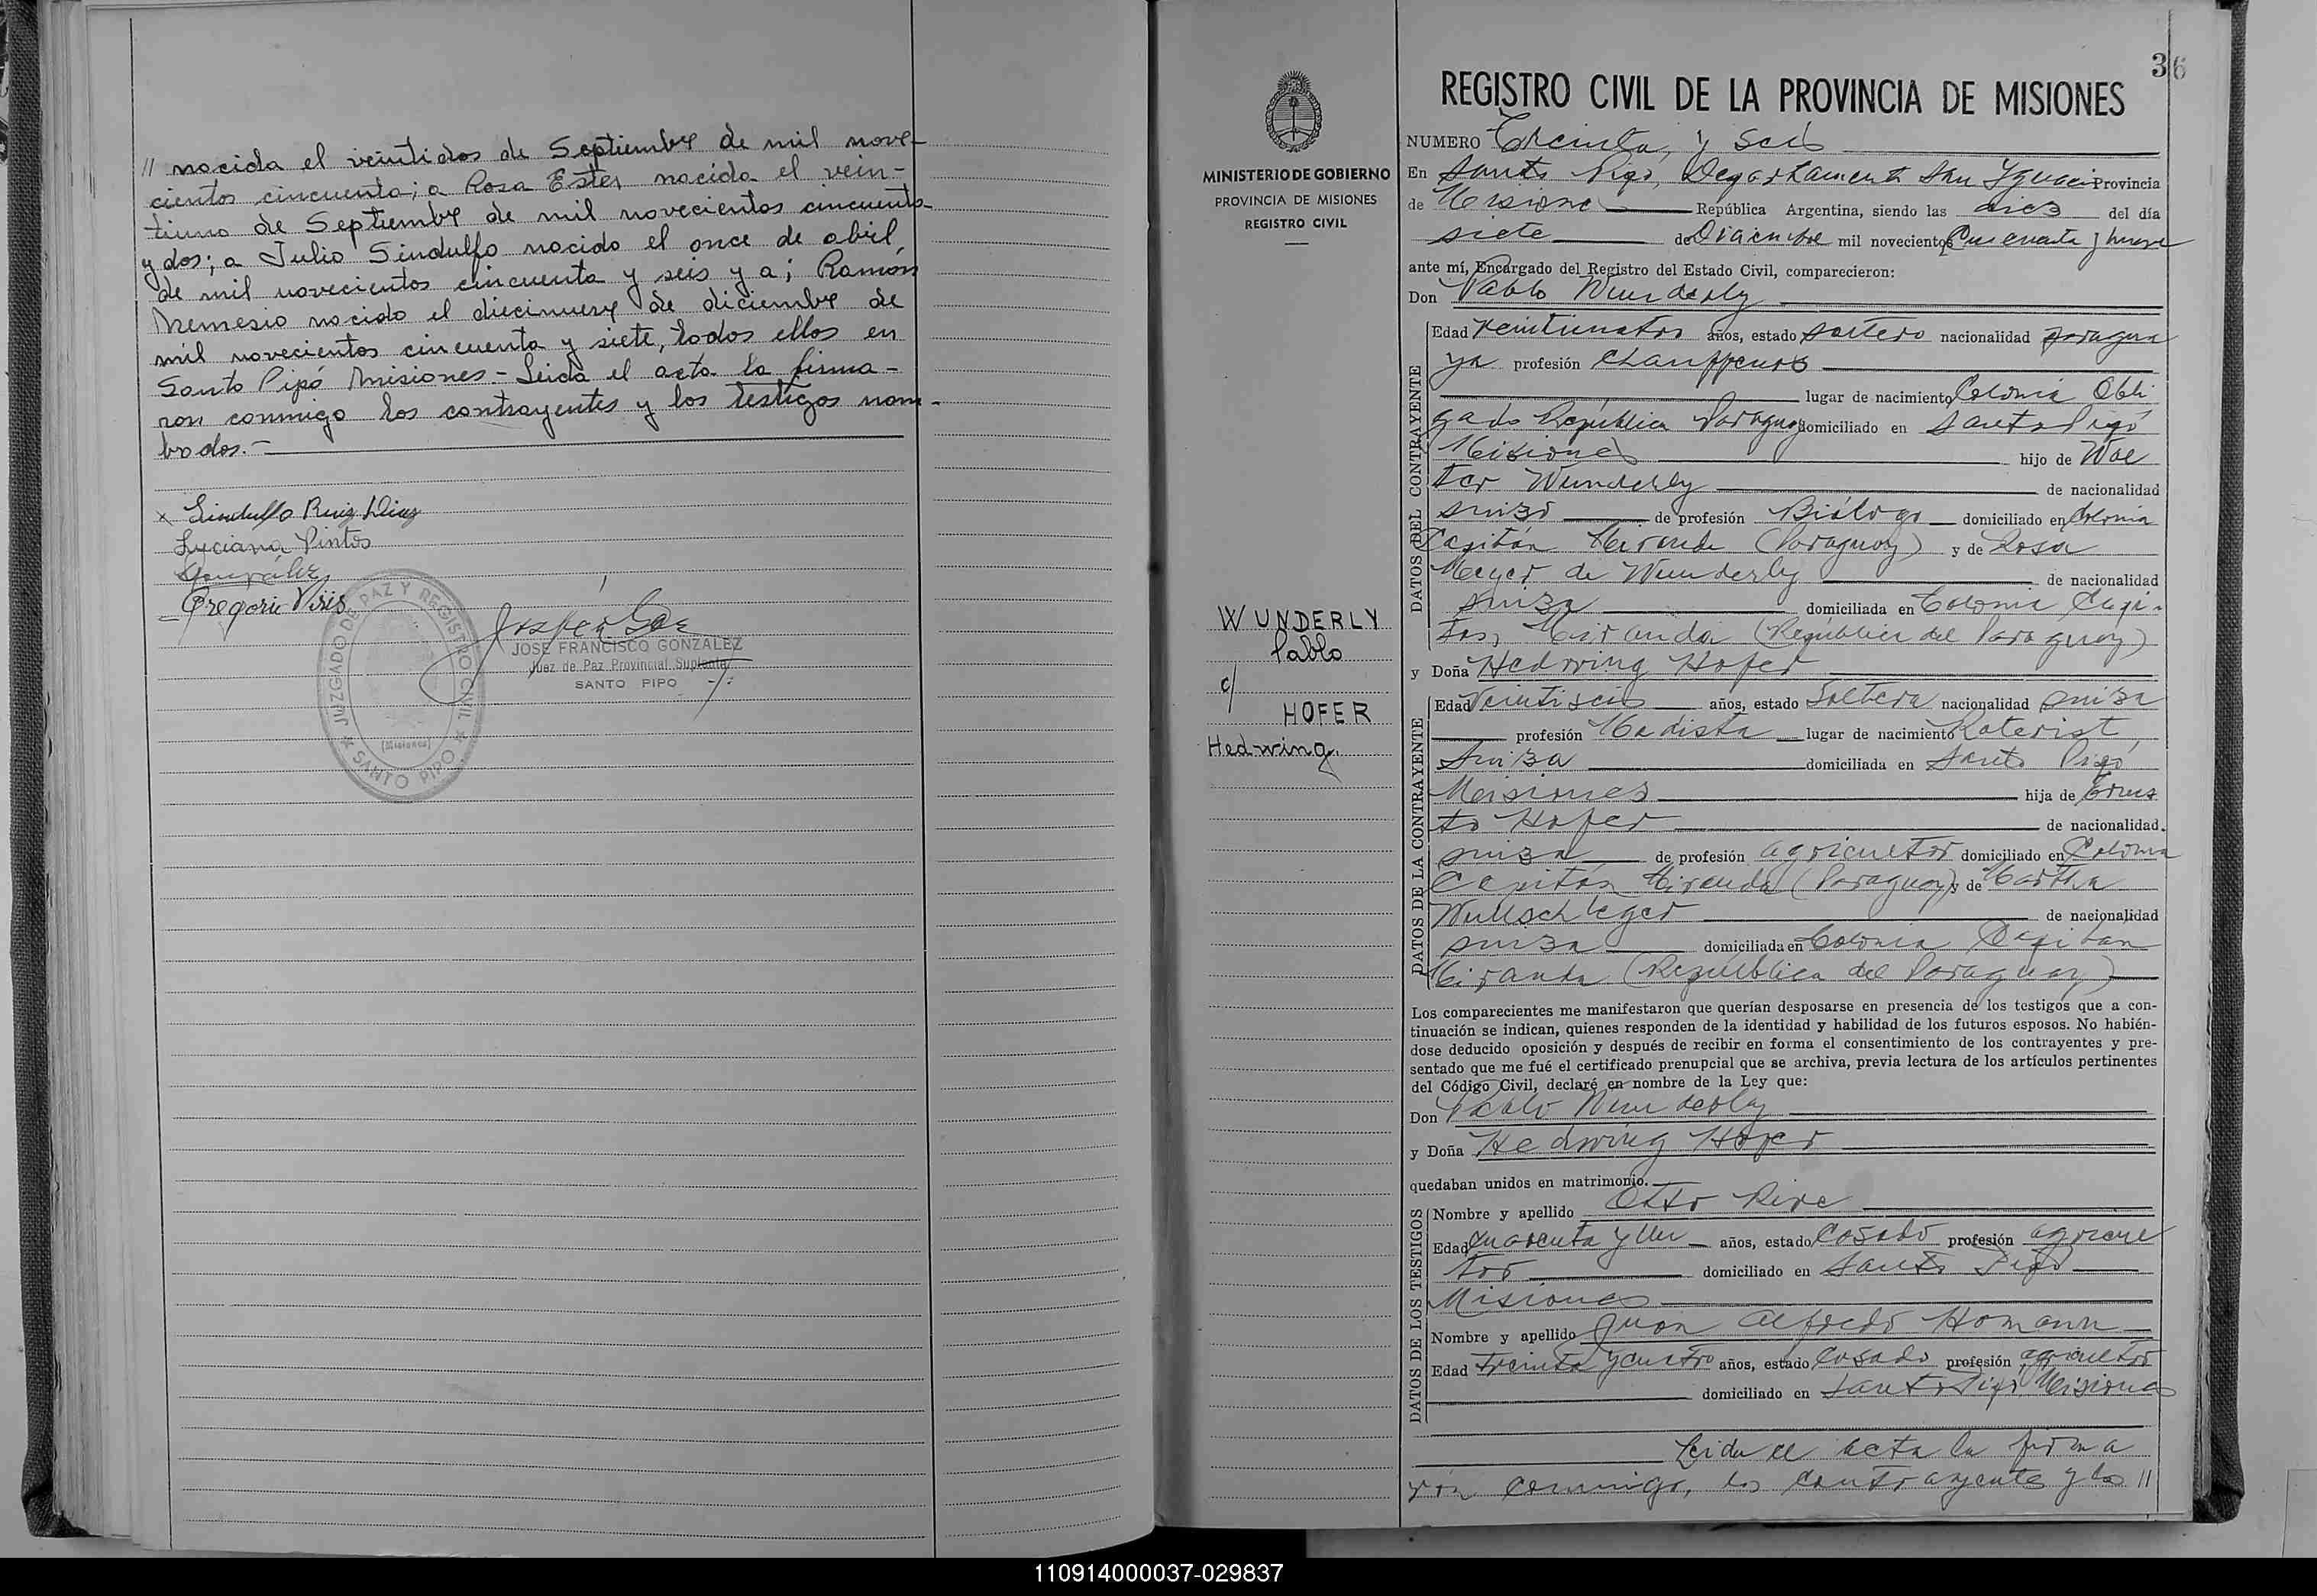 // nacida el veintidos de Septiembre de mil nove-
cientos cincuenta; a Rosa Ester nacida el vein-
tiuno de Septiembre de mil novecientos cincuenta
y dos; a Julio Sindulfo nacido el once de abril,
de mil novecientos cincuenta y seis y a; Ramón
Nemesio nacido el diecinueve de diciembre de
mil novecientos cincuenta y siete, todos ellos en
Santo Pipó Misiones.- Leida el acta la firma-
ron conmigo los contrayentes y los testigos nom-
brados.-
x Sindulfo Ruiz Diaz
Luciana Pintos
González
Gregorio
JUZGADO DE PAZ Y REGISTRO CIVIL
(Misiones)
★ SANTO PIPO ★
JOSE FRANCISCO GONZALEZ
Juez de Paz Provincial Suplente
SANTO PIPO
MINISTERIO DE GOBIERNO
PROVINCIA DE MISIONES
REGISTRO CIVIL
WUNDERLY
Pablo
c/
HOFER
Hedwing.
36
REGISTRO CIVIL DE LA PROVINCIA DE MISIONES
NUMERO Treinta, y seis
En Santo Pipó, Departamento San Ygnacio Provincia
de Misiones República Argentina, siendo las diez del día
siete de Diciembre mil novecientos Cincuenta y nueve
ante mí, Encargado del Registro del Estado Civil, comparecieron:
Don Pablo Wunderly
DATOS DEL CONTRAYENTE
Edad veinticuatro años, estado soltero nacionalidad paragua
ya profesión chauffeurs
lugar de nacimiento Colonia Obli
gado República Paraguay domiciliado en Santo Pipó
Misiones hijo de Wal
ter Wunderly de nacionalidad
suizo de profesión Biólogo domiciliado en Colonia
Capitán Miranda (Paraguay) y de Rosa
Meyer de Wunderly de nacionalidad
suiza domiciliada en Colonia Capi-
tan, Miranda (República del Paraguay)
y Doña Hedwing Hofer
DATOS DE LA CONTRAYENTE
Edad Veintiseis años, estado Soltera nacionalidad suiza
profesión Modista lugar de nacimiento Roterist
Suiza domiciliada en Santo Pipó
Misiones hija de Ernes
to Hofer de nacionalidad.
suiza de profesión agricultor domiciliado en Colonia
Capitán Miranda (Paraguay) y de Martha
Wullschleger de nacionalidad
suiza domiciliada en Colonia Capitan
Miranda (República del Paraguay)
Los comparecientes me manifestaron que querían desposarse en presencia de los testigos que a con-
tinuación se indican, quienes responden de la identidad y habilidad de los futuros esposos. No habién-
dose deducido oposición y después de recibir en forma el consentimiento de los contrayentes y pre-
sentado que me fué el certificado prenupcial que se archiva, previa lectura de los artículos pertinentes
del Código Civil, declaré en nombre de la Ley que:
Don Pablo Wunderly
y Doña Hedwing Hofer
quedaban unidos en matrimonio.
DATOS DE LOS TESTIGOS
Nombre y apellido Otto Rive
Edad cuarenta y un años, estado Casado profesión agricul
tor domiciliado en Santo Pipó
Misiones
Nombre y apellido Juan Alfredo Homann
Edad treinta y cuatro años, estado Casado profesión agricultor
domiciliado en Santo Pipó Misiones
Leida el acta la firma
ron conmigo, los contrayente y los //
110914000037-029837